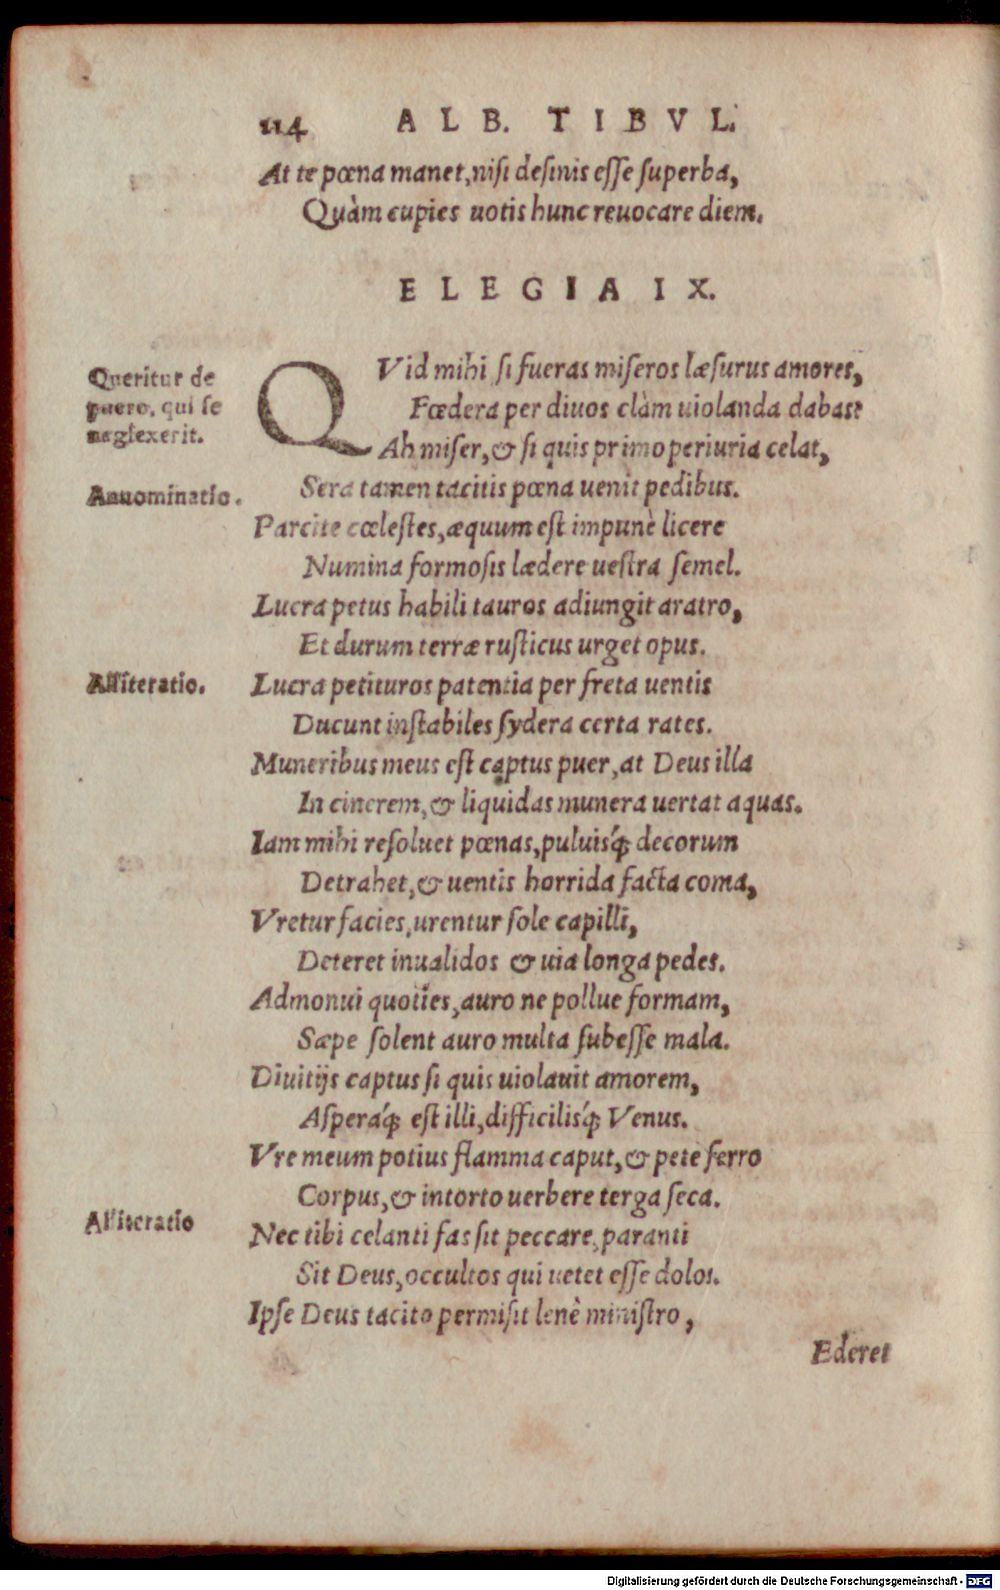 114 ALB. TIBVL.
At te pœna manet, nisi desinis esse superba,
Quàm cupies uotis hunc reuocare diem.
ELEGIA IX.
Queritur de
puero, qui se
neglexerit.
QVid mihi si fueras miseros læsurus amores,
Fœdera per diuos clàm uiolanda dabas?
Ah miser, & si quis primo periuria celat,
Annominatio.
Sera tamen tacitis pœna uenit pedibus.
Parcite cœlestes, æquum est impunè licere
Numina formosis lædere uestra semel.
Lucra petus habili tauros adiungit aratro,
Et durum terræ rusticus urget opus.
Alliteratio.
Lucra petituros patentia per freta uentis
Ducunt instabiles sydera certa rates.
Muneribus meus est captus puer, at Deus illa
In cinerem, & liquidas munera uertat aquas.
Iam mihi resoluet pœnas, puluisq́; decorum
Detrahet, & uentis horrida facta coma,
Vretur facies, urentur sole capilli,
Deteret inualidos & uia longa pedes.
Admonui quoties, auro ne pollue formam,
Sæpe solent auro multa subesse mala.
Diuitijs captus si quis uiolauit amorem,
Asperaq́; est illi, difficilisq́; Venus.
Vre meum potius flamma caput, & pete ferro
Corpus, & intorto uerbere terga seca.
Alliteratio
Nec tibi celanti fas sit peccare, paranti
Sit Deus, occultos qui uetet esse dolos.
Ipse Deus tacito permisit lenè ministro,
Ederet
Digitalisierung gefördert durch die Deutsche Forschungsgemeinschaft - DFG